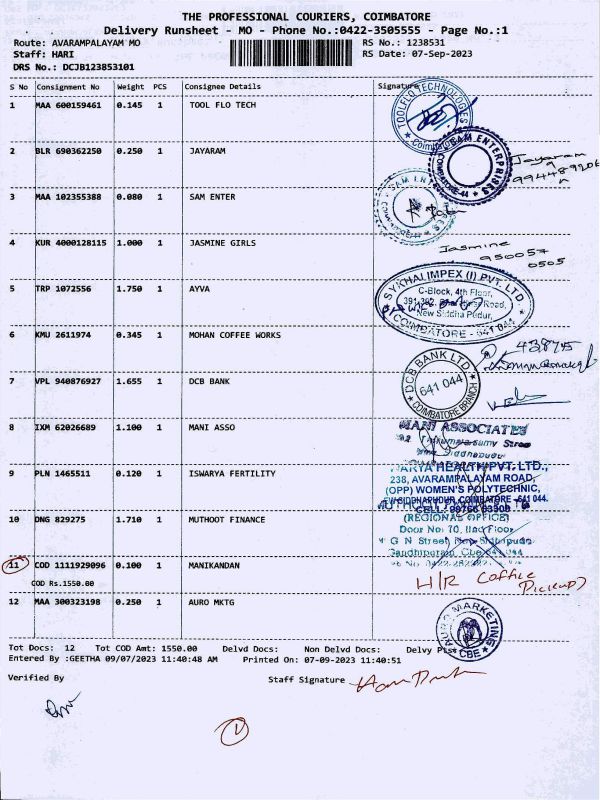 THE PROFESSIONAL COURIERS, COIMBATORE
Delivery Runsheet - MO - Phone No.:0422-3505555 - Page No.:1
Route: AVARAMPALAYAM MO RS No.: 1238531
Staff: HARI RS Date: 07-Sep-2023
DRS No.: DCJB123853101
S No Consignment No Weight PCS Consignee Details Signature
1 MAA 600159461 0.145 1 TOOL FLO TECH
TOOLFLO TECHNOLOGIES
Coimbatore
2 BLR 690362250 0.250 1 JAYARAM
SAM ENTERPRISES
COIMBATORE-44
Jayaram
3 MAA 102355388 0.080 1 SAM ENTER
4 KUR 4000128115 1.000 1 JASMINE GIRLS
Jasmine
950057
0505
5 TRP 1072556 1.750 1 AYVA
SYKHALIMPEX (I) PVT. LTD.
C-Block, 4th Floor,
New Siddha Pudur,
COIMBATORE - 641 044
6 KMU 2611974 0.345 1 MOHAN COFFEE WORKS
43875
7 VPL 940876927 1.655 1 DCB BANK
DCB BANK LTD
641 044
COIMBATORE BRANCH
8 IXM 62026689 1.100 1 MANI ASSO
MANI ASSOCIATES
9 PLN 1465511 0.120 1 ISWARYA FERTILITY
HEALTH PVT. LTD.,
238, AVARAMPALAYAM ROAD,
(OPP) WOMEN'S POLYTECHNIC,
COIMBATORE - 641 044.
10 DNG 829275 1.710 1 MUTHOOT FINANCE
(REGIONAL OFFICE)
Door No: 70, IInd Floor
G N Street
Gandhipuram, Cbe
11 COD 1111929096 0.100 1 MANIKANDAN
COD Rs.1550.00
H/R
12 MAA 300323198 0.250 1 AURO MKTG
AURO MARKETING
CBE
Tot Docs: 12 Tot COD Amt: 1550.00 Delvd Docs: Non Delvd Docs: Delvy Pts:
Entered By :GEETHA 09/07/2023 11:40:48 AM Printed On: 07-09-2023 11:40:51
Verified By Staff Signature